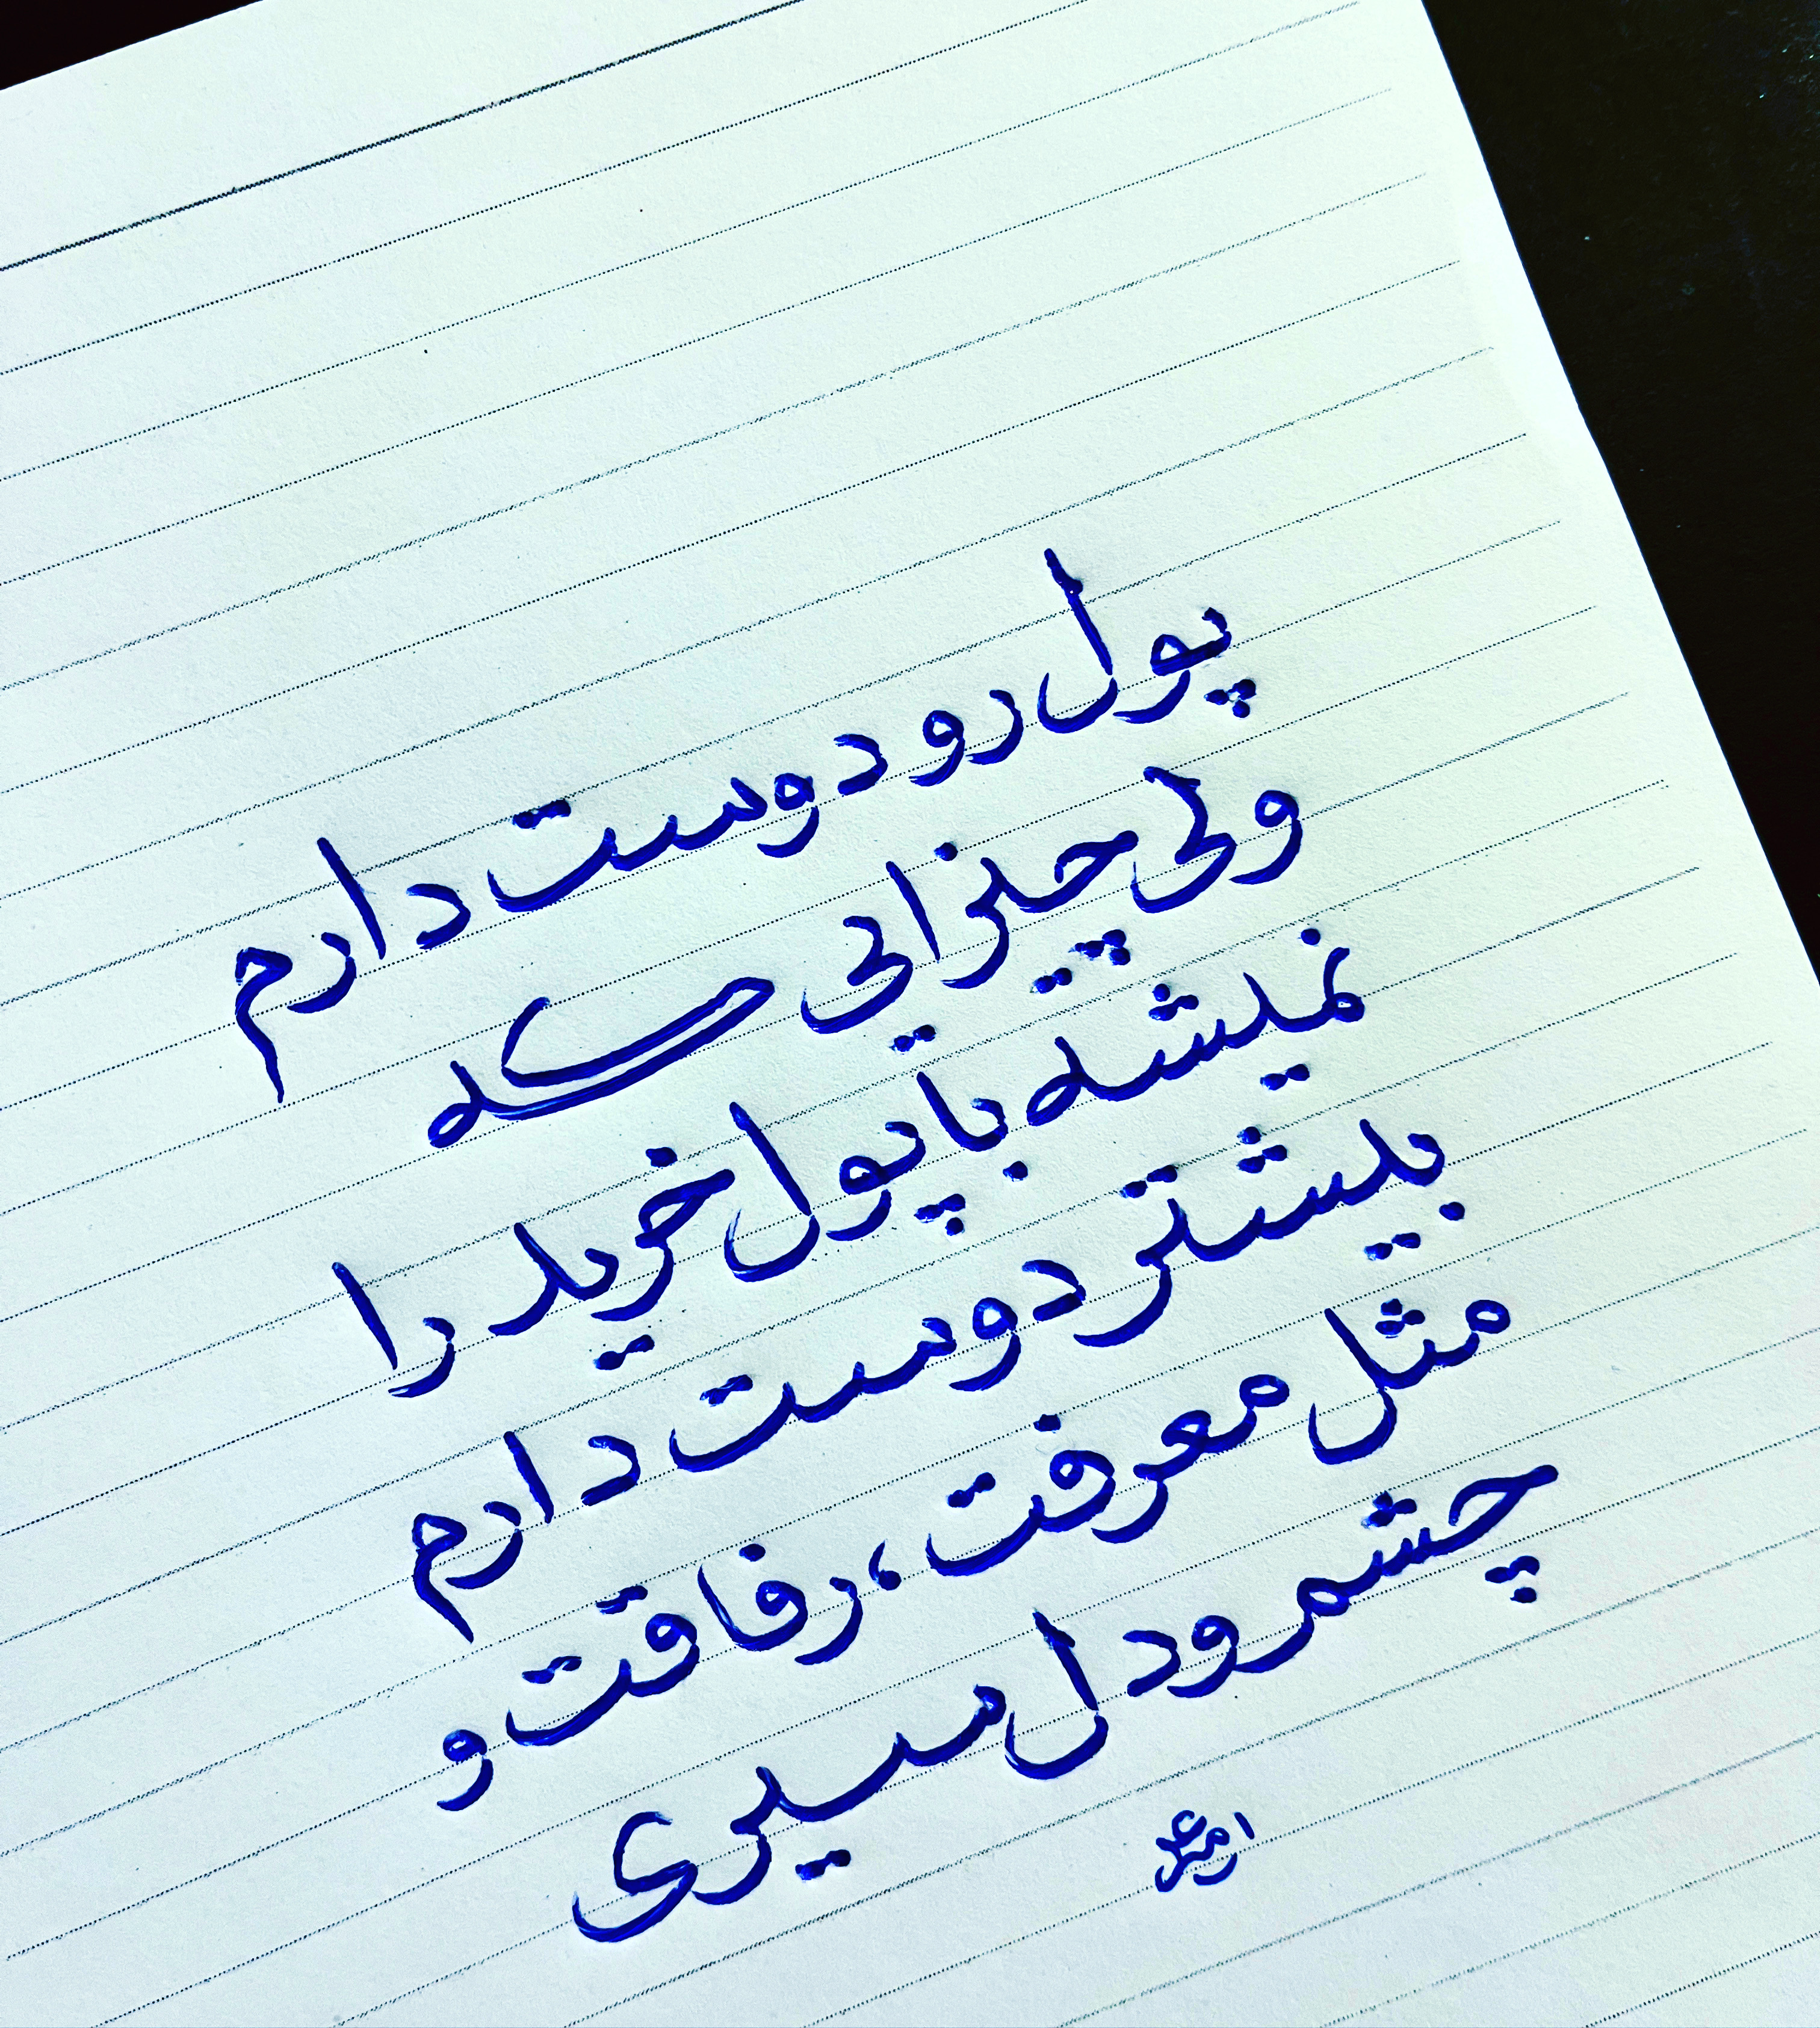 پول رو دوست دارم
ولی چیزایی که
نمیشه با پول خرید را
بیشتر دوست دارم
مثل معرفت، رفاقت و
چشم و دل سیری